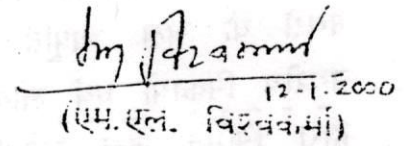 12.1.2000
(एम.एल. विश्वकर्मा)